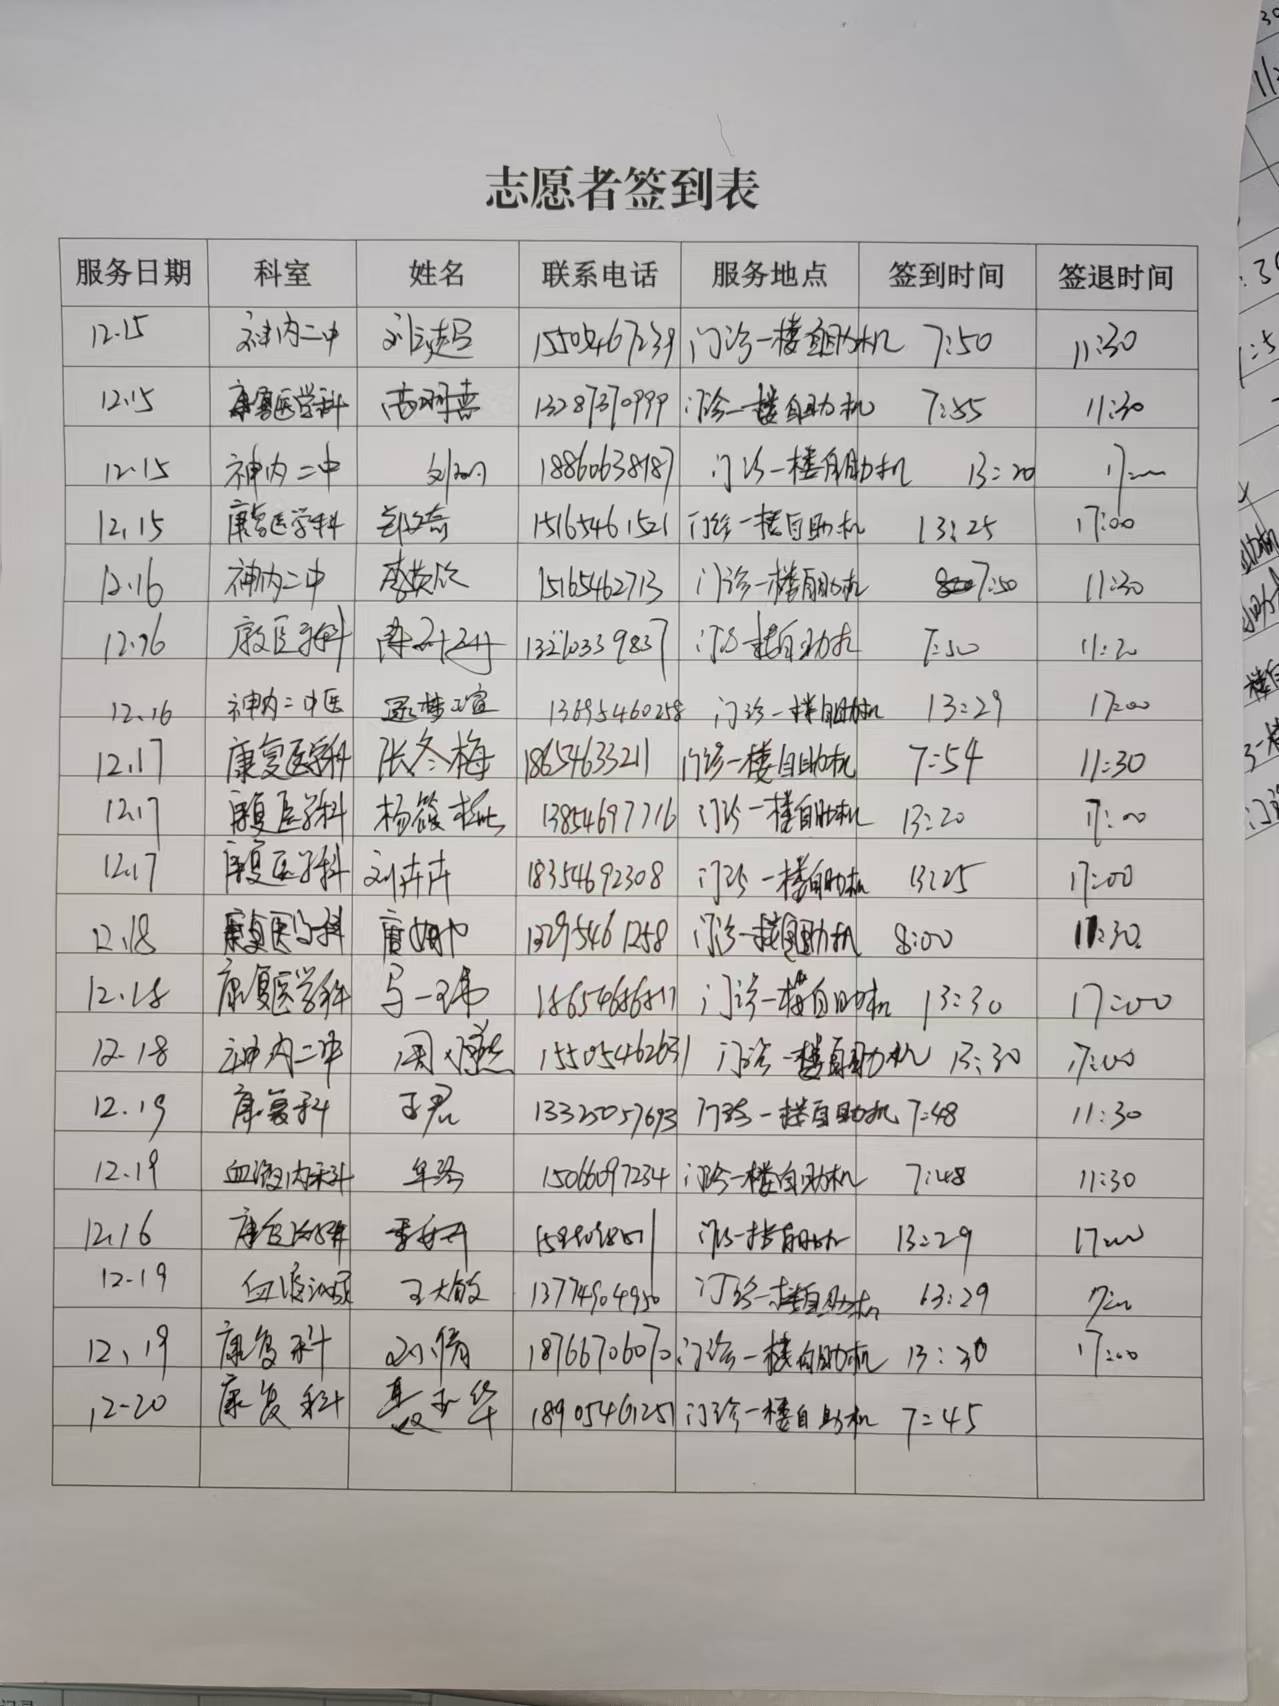 志愿者签到表
服务日期 科室 姓名 联系电话 服务地点 签到时间 签退时间
12.15 神内二中 15505467239 门诊一楼自助机 7:50 11:30
12.15 康复医学科 13287370999 门诊一楼自助机 7:55 11:30
12.15 神内二中 18860638187 门诊一楼自助机 13:20 17:00
12.15 康复医学科 15165461521 门诊一楼自助机 13:25 17:00
12.16 神内二中 15165462713 门诊一楼自助机 7:50 11:30
12.16 康复医学科 门诊一楼自助机 7:50
12.16 神内二中医 13695460258 门诊一楼自助机 13:29 17:00
12.17 康复医学科 张冬梅 18654633211 门诊一楼自助机 7:54 11:30
12.17 康复医学科 杨筱 13854697716 门诊一楼自助机 13:20 17:00
12.17 康复医学科 刘卉卉 18354692308 门诊一楼自助机 13:25 17:00
12.18 康复医学科 13295461258 门诊一楼自助机 8:00 11:30
12.18 康复医学科 马一玮 门诊一楼自助机 13:30 17:00
12.18 神内二中 周 15505462631 门诊一楼自助机 13:30 17:00
12.19 康复科 王君 13325057693 门诊一楼自助机 7:48 11:30
12.19 血液内科 牟 15066097234 门诊一楼自助机 7:48 11:30
12.16 康复医学科 门诊一楼自助机 13:29 17:00
12.19 王大敏 13774904950 门诊一楼自助机 13:29
12.19 康复科 刘倩 18766706070 门诊一楼自助机 13:30 17:00
12-20 康复科 聂玉华 18905461251 门诊一楼自助机 7:45